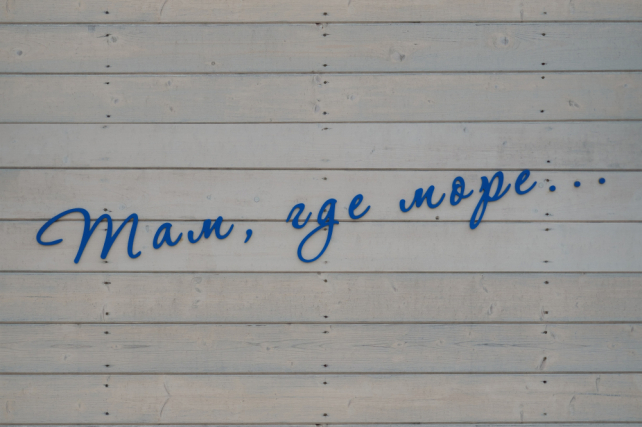 Там, где море...